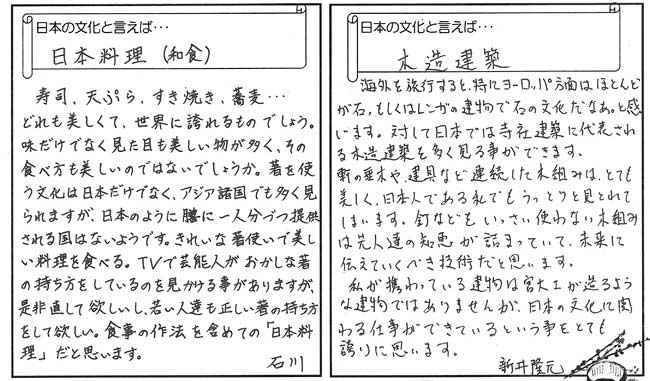 日本の文化と言えば…
日本料理（和食）
寿司、天ぷら、すき焼き、蕎麦…
どれも美しくて、世界に誇れるものでしょう。
味だけでなく見た目も美しい物が多く、その
食べ方も美しいのではないでしょうか。箸を使
う文化は日本だけでなく、アジア諸国でも多く見
られますが、日本のように膳に一人分づつ提供
される国はないようです。きれいな箸使いで美し
い料理を食べる。TVで芸能人がおかしな箸
の持ち方をしているのを見かける事がありますが、
是非直して欲しいし、若い人達も正しい箸の持ち方
をして欲しい。食事の作法を含めての「日本料
理」だと思います。
石川
日本の文化と言えば…
木造建築
海外を旅行すると、特にヨーロッパ方面はほとんど
が石、もしくはレンガの建物で石の文化だなぁ。と感
います。対して日本では寺社建築に代表され
る木造建築を多く見る事ができます。
軒の垂木や、建具など連続した木組みは、とても
美しく、日本人である私でもうっとりと見とれて
しまいます。釘などをいっさい使わない木組み
は先人達の知恵が詰まっていて、未来に
伝えていくべき技術だと思います。
私が携わっている建物は宮大工が造るよう
な建物ではありませんが、日本の文化に関
わる仕事ができているという事をとても
誇りに思います。
新井隆元